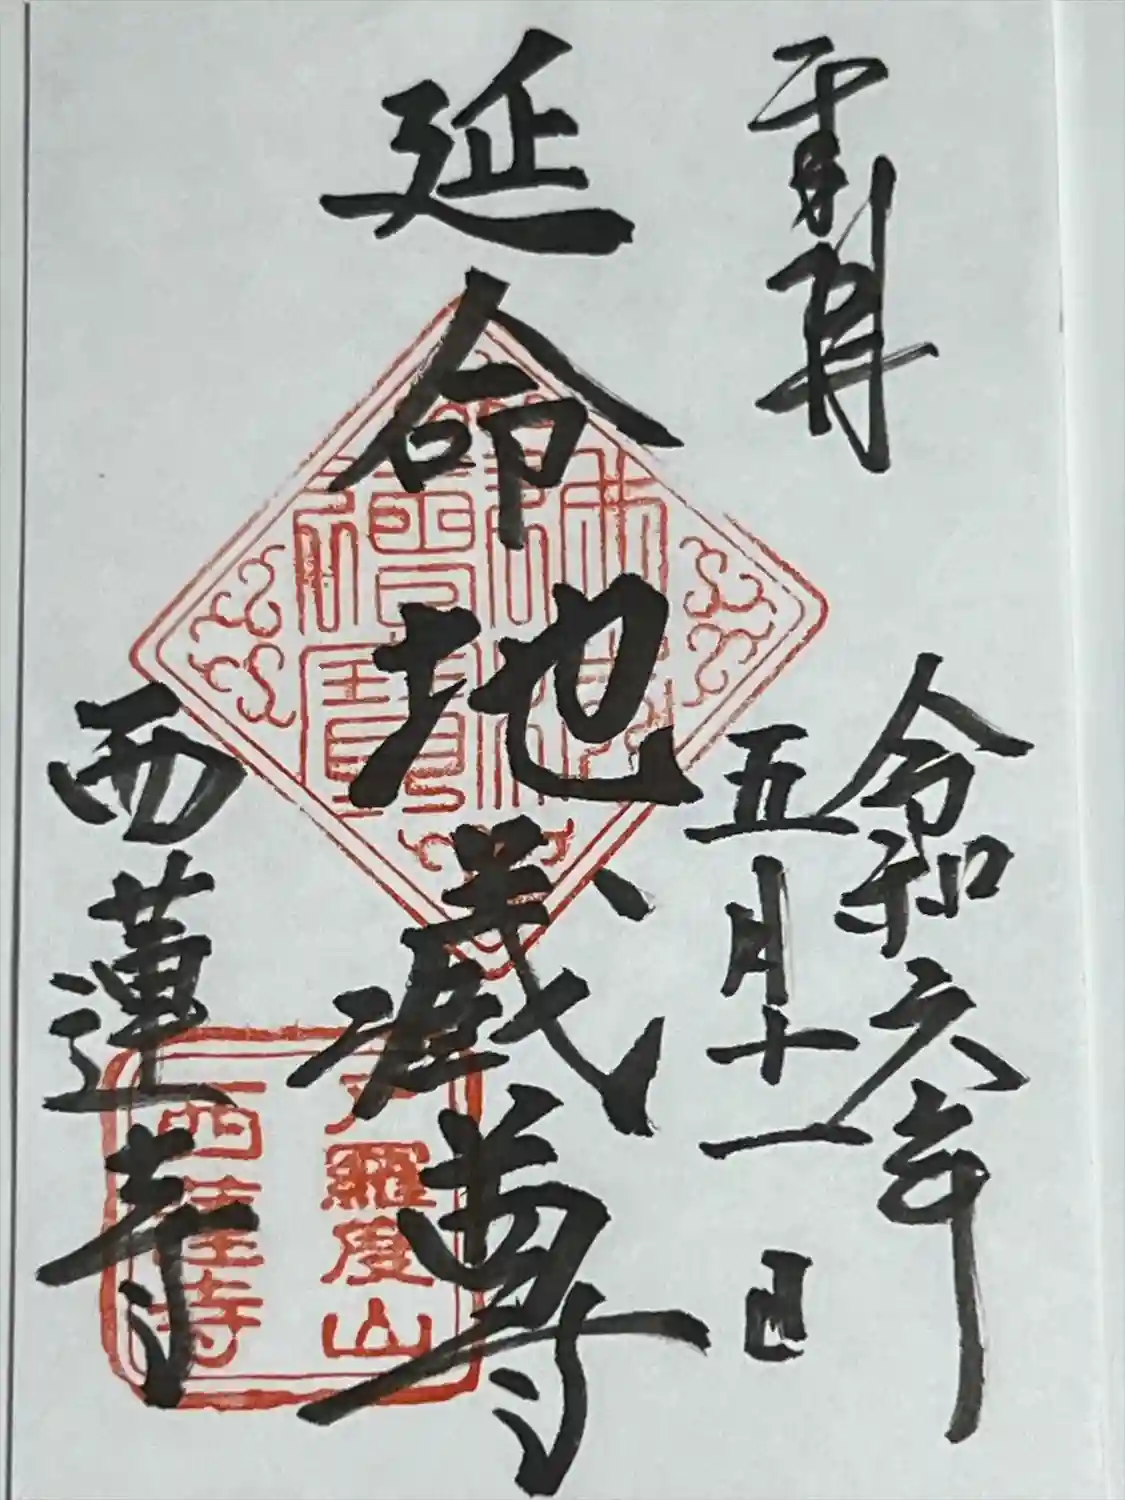 奉拝
令和六年
五月十一日
延命地蔵尊
西蓮寺
佛法僧寶
羅度山
西蓮寺